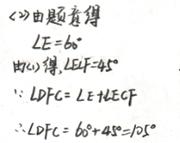 (2)由题意得
∠E=60°
由(1)得,∠ECF=45°
∵ ∠DFC=∠E+∠ECF
∴∠DFC=60°+45°=105°